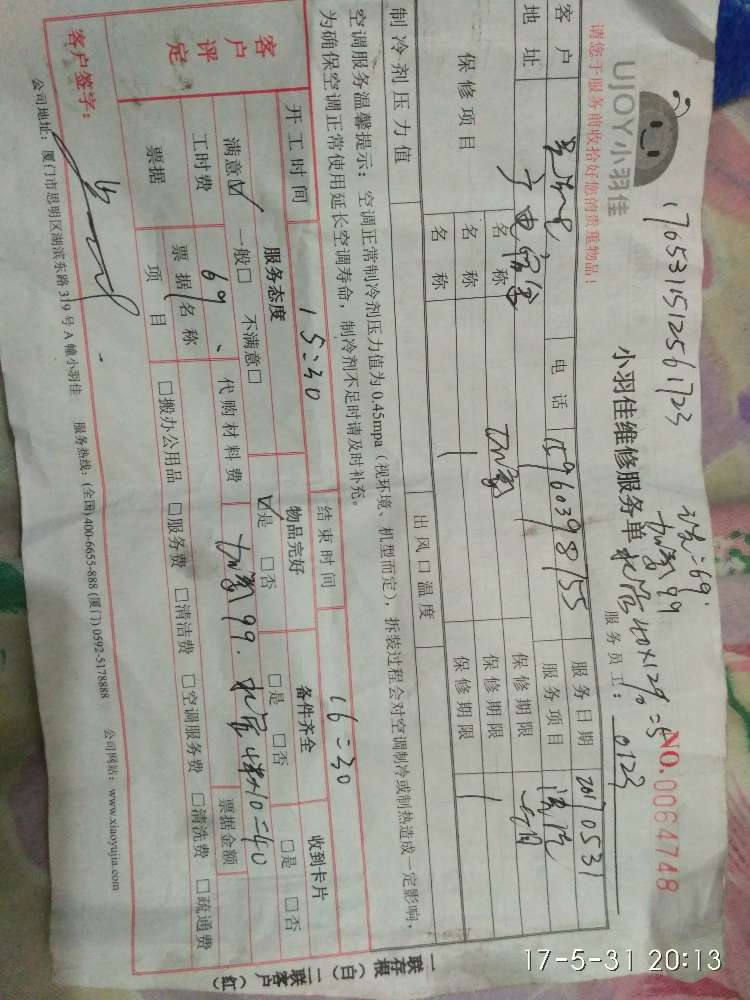 UJOY小羽佳
1705311512561723
请您于服务前收拾好您的贵重物品！
小羽佳维修服务单
69.
加氟99
服务员工： 0123
NO.0064748
客户 电话 15960398155 服务日期 20170531
地址 服务项目
保修项目 名称 加氟 保修期限
名称 保修期限
名称 保修期限
制冷剂压力值 出风口温度
空调服务温馨提示：空调正常制冷剂压力值为0.45mpa（视环境、机型而定），拆装过程会对空调制冷或制热造成一定影响，
为确保空调正常使用延长空调寿命，制冷剂不足时请及时补充。
开工时间 15:30 结束时间 16:30
客户评定 服务态度 物品完好 备件齐全 收到卡片
满意☑ 一般□ 不满意□ ☑是 □否 □是 □否 □是 □否
工时费 69、 代购材料费 加氟99. 10=40 票据金额
票据 票据名称
项目 □搬办公用品 □服务费 □清洁费 □空调服务费 □清洗费 □疏通费
客户签字：
公司地址：厦门市思明区湖滨东路319号A幢小羽佳 服务热线：(全国) 400-6655-888 (厦门) 0592-5178888 公司网站：www.xiaoyujia.com
一联存根（白）二联客户（红）
17-5-31 20:13